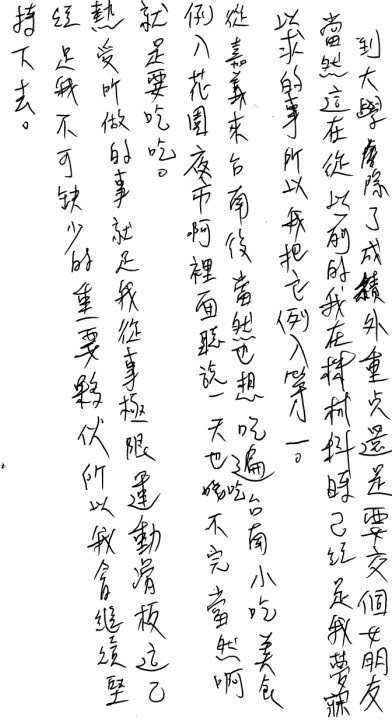 到大學會除了成績外重点還是要交個女朋友
當然這在從以前的我在機械科時己经是我夢寐
以求的事所以我把它例入第一。
從嘉義來台南後當然也想吃遍台南小吃美食
例入花園夜市啊裡面聽說一天也吃不完當然啊
就是要吃吃。
熱愛所做的事就是我從事極限運動滑板這己
经是我不可缺少的重要夥伙所以我會繼續堅
持下去。